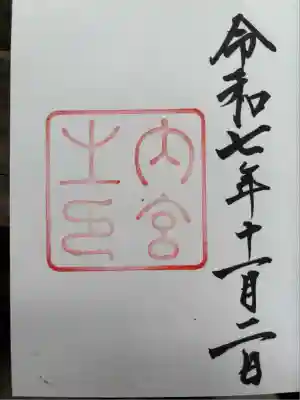 令和七年十一月二日
内宮
之印